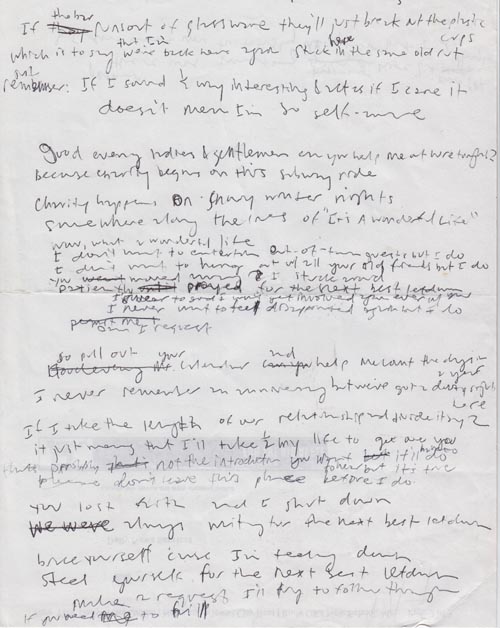 the bar
If they runs out of glassware they'll just break out the plastic cups
which is to say that I'm we're back here again stuck here in the same old rut
but remember: If I sound 1/2 way interesting & act as if I care it
doesn't mean I'm so self-aware
Good evening ladies & gentlemen can you help me out here tonight?
because charity begins on this subway ride
Charity happens on snowy winter nights
somewhere along the lines of "It's A Wonderful Life"
wow, what a wonderful life
I don't want to entertain out-of-town guests but I do
I don't want to hang out w/ all your old friends but I do
you went moved around & I stuck around
patiently prayed for the next best letdown
I swear to god
I never want to feel disappointed again but I do
permit me one request
so pull out your calendar and help me count the days in a year
I never remember an anniversary but we've got a date right here
If I take the length of our relationship and divide it by 2
it just means that I'll take 1/2 my life to get over you
that's probably not the introduction you want it'll do
please don't leave this place before I do
you lost faith and I shut down
We were always waiting for the next best letdown
brace yourself 'cause I'm feeling down
steel yourself for the next best letdown
make a request I'll try to follow through
If you need me to I'll